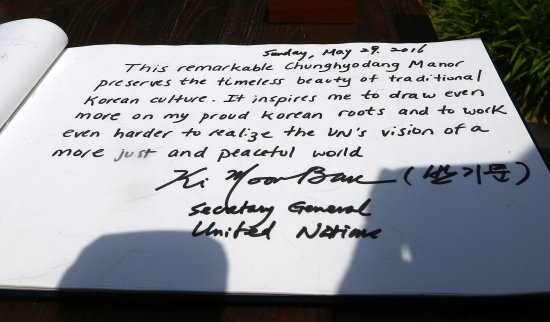 Sunday, May 29. 2016
This remarkable Chunghyodang Manor
preserves the timeless beauty of traditional
Korean culture. It inspires me to draw even
more on my proud Korean roots and to work
even harder to realize the UN's vision of a
more just and peaceful world
Ki Moon Ban (반기문)
Secretary General
United Nations